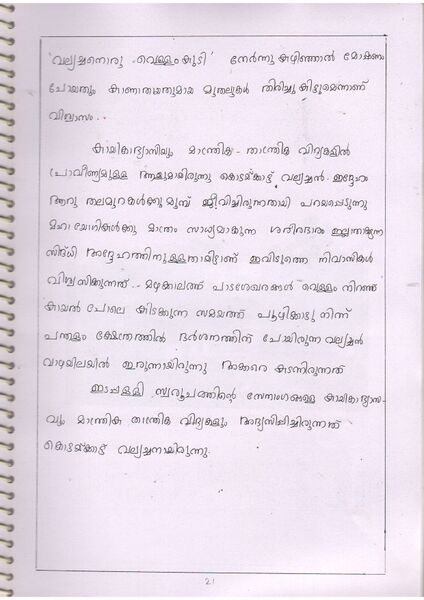 'വല്യച്ചനൊരു വെള്ളംകുടി' നേർന്നു കഴിഞ്ഞാൽ മോഷണം
പോയതും കാണാതായതുമായ മുതലുകൾ തിരിച്ചു കിട്ടുമെന്നാണ്
വിശ്വാസം.
കായികാഭ്യാസിയും മാന്ത്രിക - താന്ത്രിക വിദ്യകളിൽ
പ്രാവീണ്യമുള്ള ആളുമായിരുന്നു കൊടയ്ക്കാട്ട് വല്യച്ചൻ. ഇദ്ദേഹം
ആറു തലമുറകൾക്കു മുമ്പ് ജീവിച്ചിരുന്നതായി പറയപ്പെടുന്നു
മഹാ യോഗികൾക്കു മാത്രം സാധ്യമാകുന്ന ശരീരഭാരം ഇല്ലാതാക്കുന്ന
സിദ്ധി അദ്ദേഹത്തിനുള്ളതായിട്ടാണ് ഇവിടുത്തെ നിവാസികൾ
വിശ്വസിക്കുന്നത്. മഴക്കാലത്ത് പാടശേഖരങ്ങൾ വെള്ളം നിറഞ്ഞ്
കായൽ പോലെ കിടക്കുന്ന സമയത്ത് പൂഴിക്കാട്ടു നിന്ന്
പന്തളം ക്ഷേത്രത്തിൽ ദർശനത്തിന് പോയിരുന്ന വല്യച്ചൻ
വാഴയിലയിൽ ഇരുന്നായിരുന്നു അക്കരെ കടന്നിരുന്നത്
ഇടപ്പള്ളി സ്വരൂപത്തിന്റെ സേനാംഗങ്ങളെ കായികാഭ്യാസ-
വും മാന്ത്രിക താന്ത്രിക വിദ്യകളും അഭ്യസിപ്പിച്ചിരുന്നത്
കൊടയ്ക്കാട്ട് വല്യച്ചനായിരുന്നു.
21